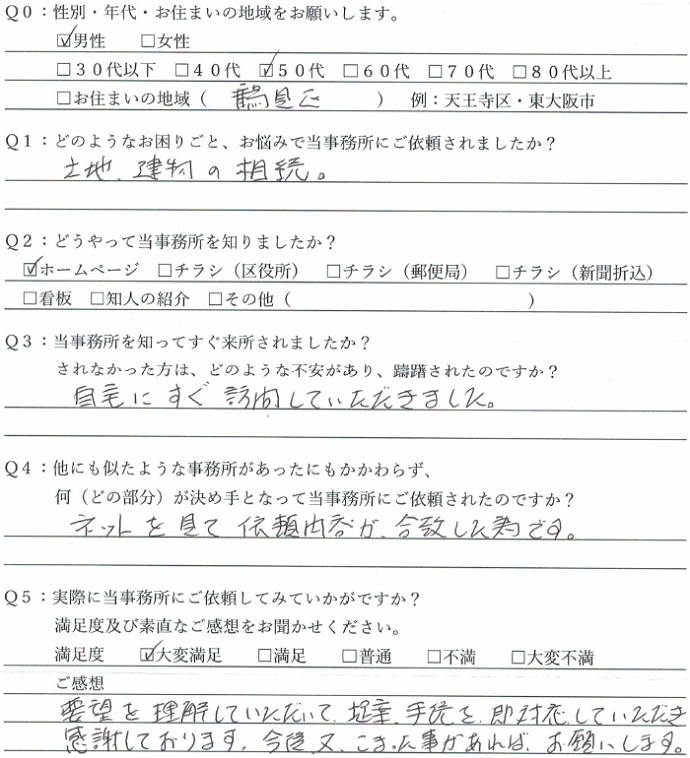 Q0：性別・年代・お住まいの地域をお願いします。
☑男性　□女性
□30代以下　□40代　☑50代　□60代　□70代　□80代以上
□お住まいの地域（　鶴見区　）　例：天王寺区・東大阪市
Q1：どのようなお困りごと、お悩みで当事務所にご依頼されましたか？
土地、建物の相続。
Q2：どうやって当事務所を知りましたか？
☑ホームページ　□チラシ（区役所）　□チラシ（郵便局）　□チラシ（新聞折込）
□看板　□知人の紹介　□その他（　　　）
Q3：当事務所を知ってすぐ来所されましたか？
されなかった方は、どのような不安があり、躊躇されたのですか？
自宅にすぐ訪問していただきました。
Q4：他にも似たような事務所があったにもかかわらず、
何（どの部分）が決め手となって当事務所にご依頼されたのですか？
ネットを見て依頼内容が、合致した為です。
Q5：実際に当事務所にご依頼してみていかがですか？
満足度及び素直なご感想をお聞かせください。
満足度　☑大変満足　□満足　□普通　□不満　□大変不満
ご感想
要望を理解していただいて、提案、手続を、即対応していただき
感謝しております。今後、又、こまった事があれば、お願いします。